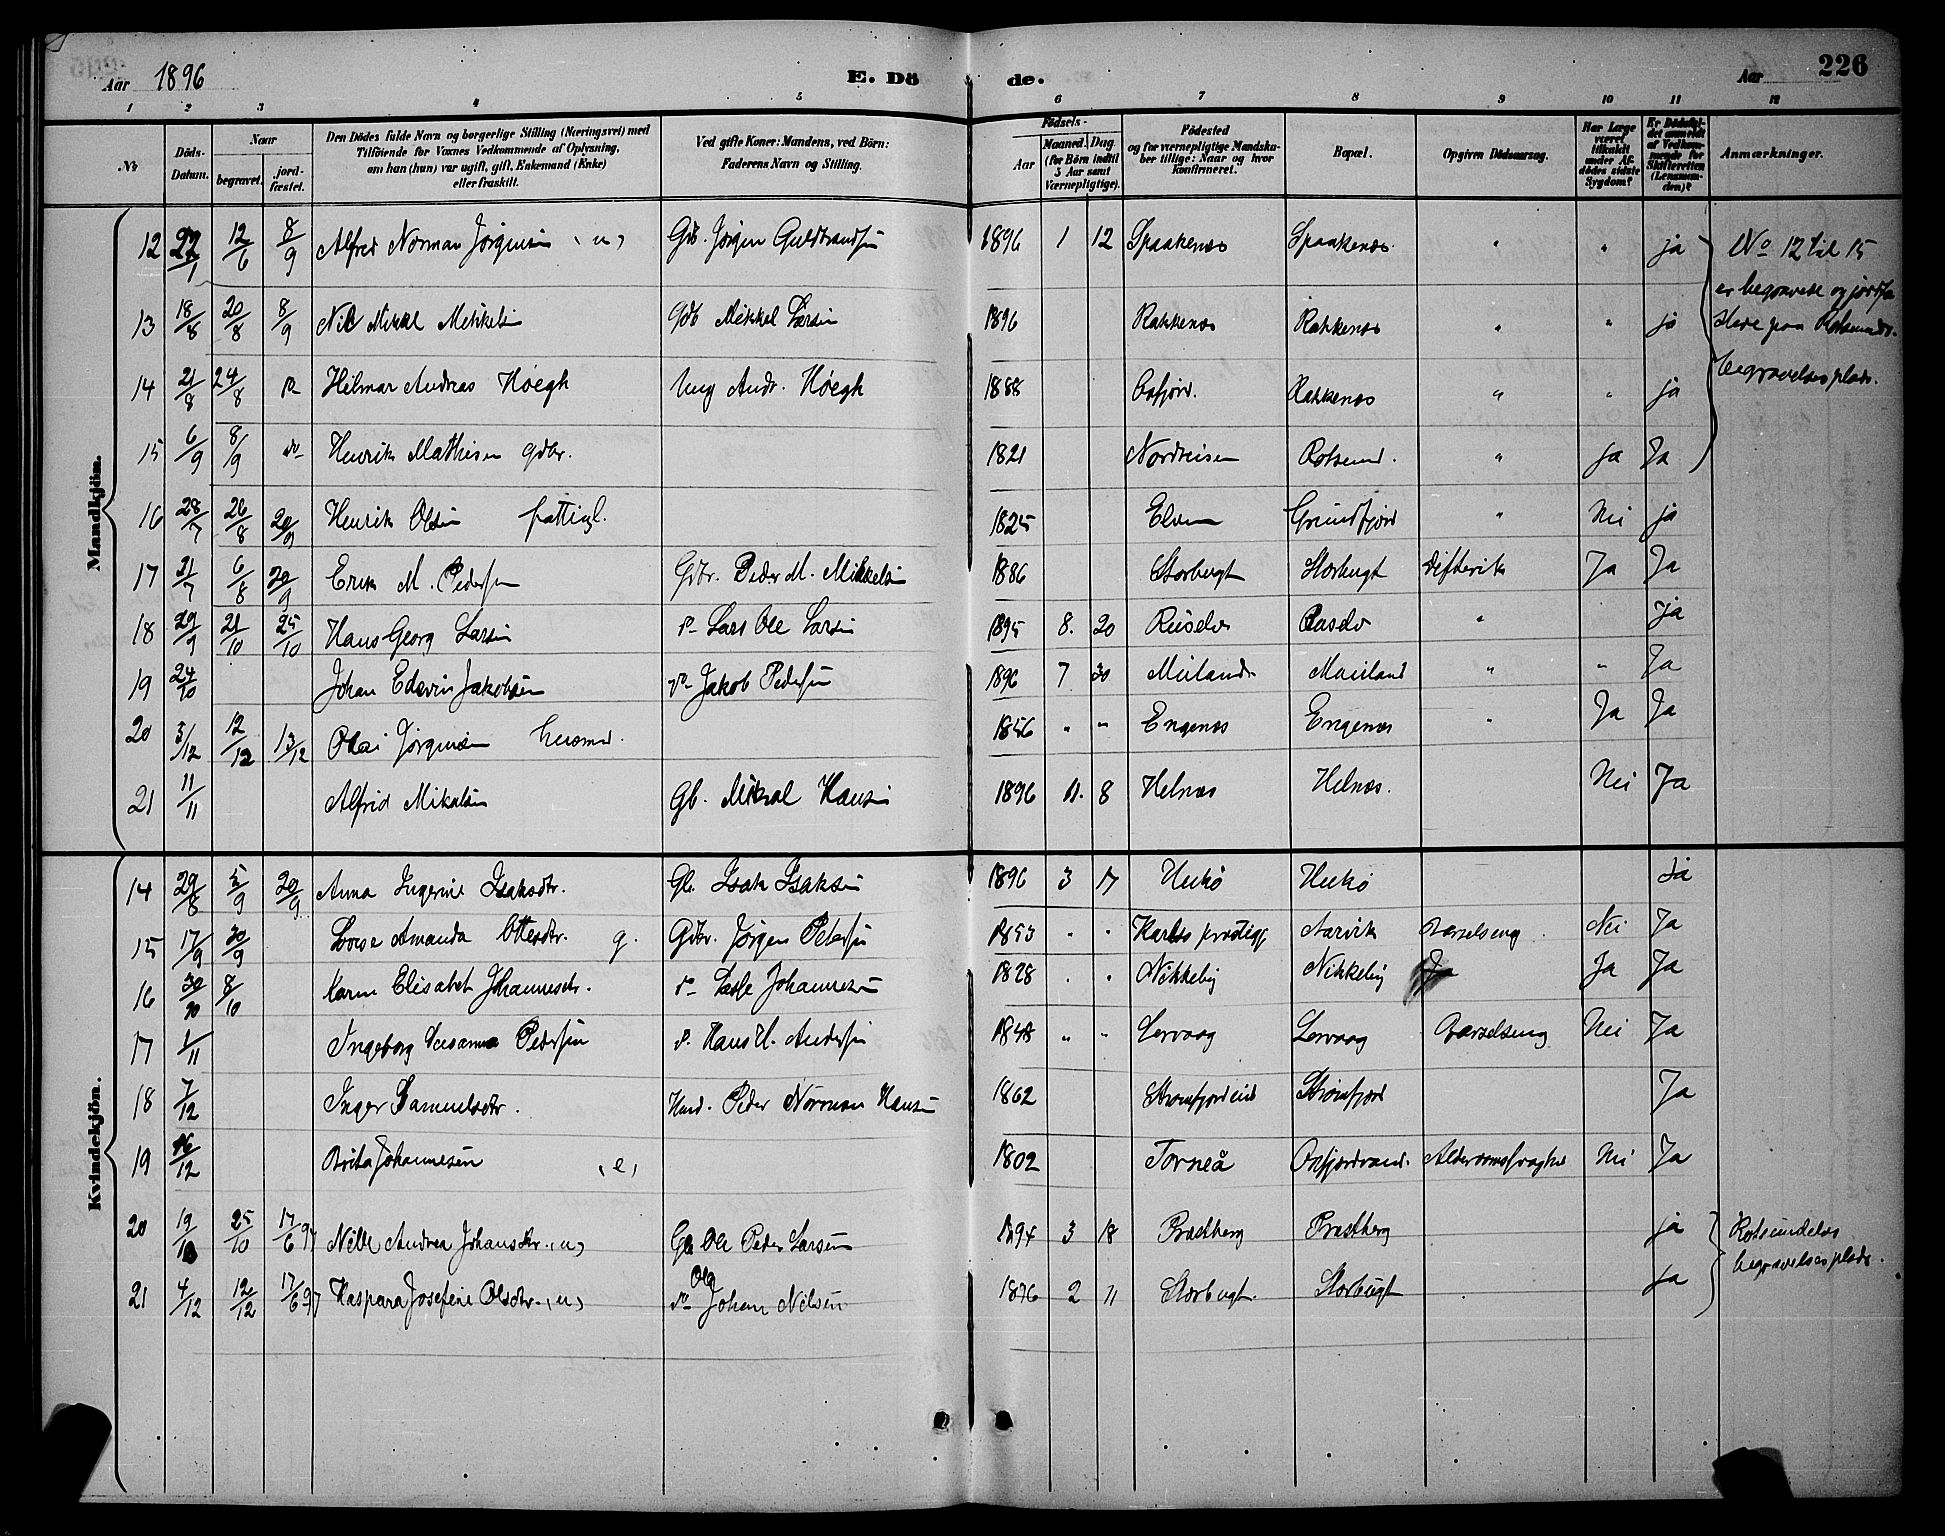 Aar 1896 E. Döde. Aar 226
1 2 3 4 5 6 7 8 9 10 11 12
No. Döds-Datum. Naar begravet. jordfæstet. Den Dödes fulde Navn og borgerlige Stilling (Næringsvei) med Tilföiende for Voxnes Vedkommende af Oplysning, om han (hun) var ugift, gift, Enkemand (Enke) eller fraskilt. Ved gifte Koner: Mandens, ved Börn: Faderens Navn og Stilling. Födsels- Aar Maaned. Dag. (for Börn indtil 5 Aar samt Værnepligtige). Födested og for værnepligtige Mandskaber tillige: Naar og hvor konfirmeret. Bopæl. Opgiven Dödsaarsag. Har Læge været tilkaldt under Afdödes sidste Sygdom? Er Dödsfaldet anmeldt af Vedkommende for Skifteretten (Lensmanden)? Anmærkninger.
Mandkjön.
12 27/1 12/6 8/9 Alfred Norman Jörgensen (u) Gdb. Jørgen Guldbrandsen 1896 1 12 Spaakenæs Spaakenæs. " " ja No 12 til 15
13 18/8 20/8 8/9 Nils Mikkel Mikkelsen Gdb Mikkel Larsen 1896 Rakkenæs Rakkenæs " " ja er begravede og jordfæstede paa Rotsunds
14 21/8 24/8 Do Hilmar Andreas Høegh Ung Andr. Høegh 1888 Oxfjord. Rakkenæs " " ja begravelsesplads.
15 6/9 8/9 do Henrik Mathisen gdbr. 1821 Nordreisen Rotsund. " ja Ja
16 28/7 26/8 20/9 Henrik Olsen fattigl. 1825 Elven Grundfjord " Nei ja
17 31/7 6/8 20/9 Erik M. Pedersen Gdbr. Peder M. Mikkelsen 1886 Storbugt Storbugt Difterit Ja Ja
18 29/9 21/10 25/10 Hans Georg Larsen do Lars Ole Larsen 1895 8. 20 Riiselv Raselv " ja
19 24/10 Johan Edevin Jakobsen do Jakob Pedersen 1896 7 30 Meiland Maeiland " " Ja
20 3/12 12/12 13/12 Olai Jörgensen husmd. 1856 " " Engenæs Engenæs " Ja Ja
21 11/11 Alfrid Mikalsen Gb. Mikal Hansen 1896 11. 8 Helnæs Helnæs. Nei Ja
Kvindekjön.
14 29/8 5/9 20/9 Anna Ingerine Isaksdtr. Gb. Isak Isaksen 1896 3 17 Hukø Hukø Ja
15 17/9 30/9 Lovise Amanda Ottesdtr. g. Gdbr. Jørgen Petersen 1853 " " Karlsø Aarvik Barselseng. Nei Ja
16 30/10 8/10 Karen Elisabet Johannesdtr. do Lasse Johannesen 1828 . . Nikkeby Nikkeby Ja Ja
17 1/11 Ingeborg Susanna Pedersen do Hans H. Andersen 1848 " " Lervaag Lervaag Barselseng Nei Ja
18 7/12 Inger Samuelsdtr. Husd. Peder Norman Hansen 1862 Strømfjordeid Strømfjord Ja
19 16/12 Brita Johannesen (e) 1802 Torneå Oxfjordvand. Alderdomssvaghed Nei Ja
20 19/10 25/10 17/6 97 Nille Andrea Johansdtr. (u) Gb Ole Peder Larsen 1894 3 18 Bradtberg Bradtberg ja Rotsundelvs
21 4/12 12/12 17/6 97 Kaspara Josefine Olsdtr. (u) do Ole Johan Nilsen 1896 2 11 Storbugt. Storbugt ja begravelsesplads.